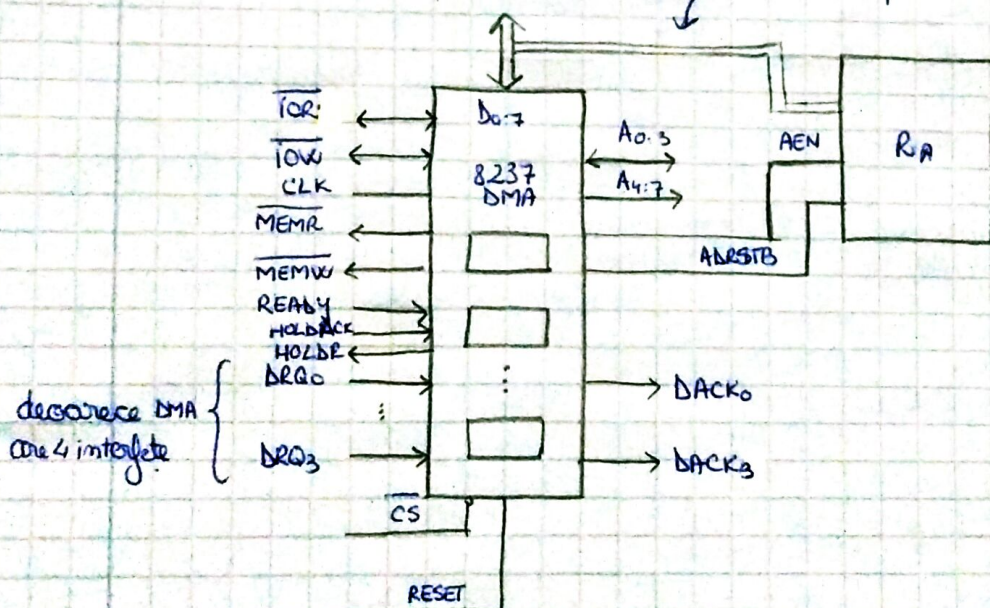 D0:7
8237
DMA
I̅O̅R̅
I̅O̅W̅
CLK
M̅E̅M̅R̅
M̅E̅M̅W̅
READY
HOLDACK
HOLDR
DRQ0
⋮
DRQ3
deoarece DMA
are 4 interfețe
C̅S̅
RESET
A0:3
A4:7
AEN
ADRSTB
RA
⋮
DACK0
DACK3